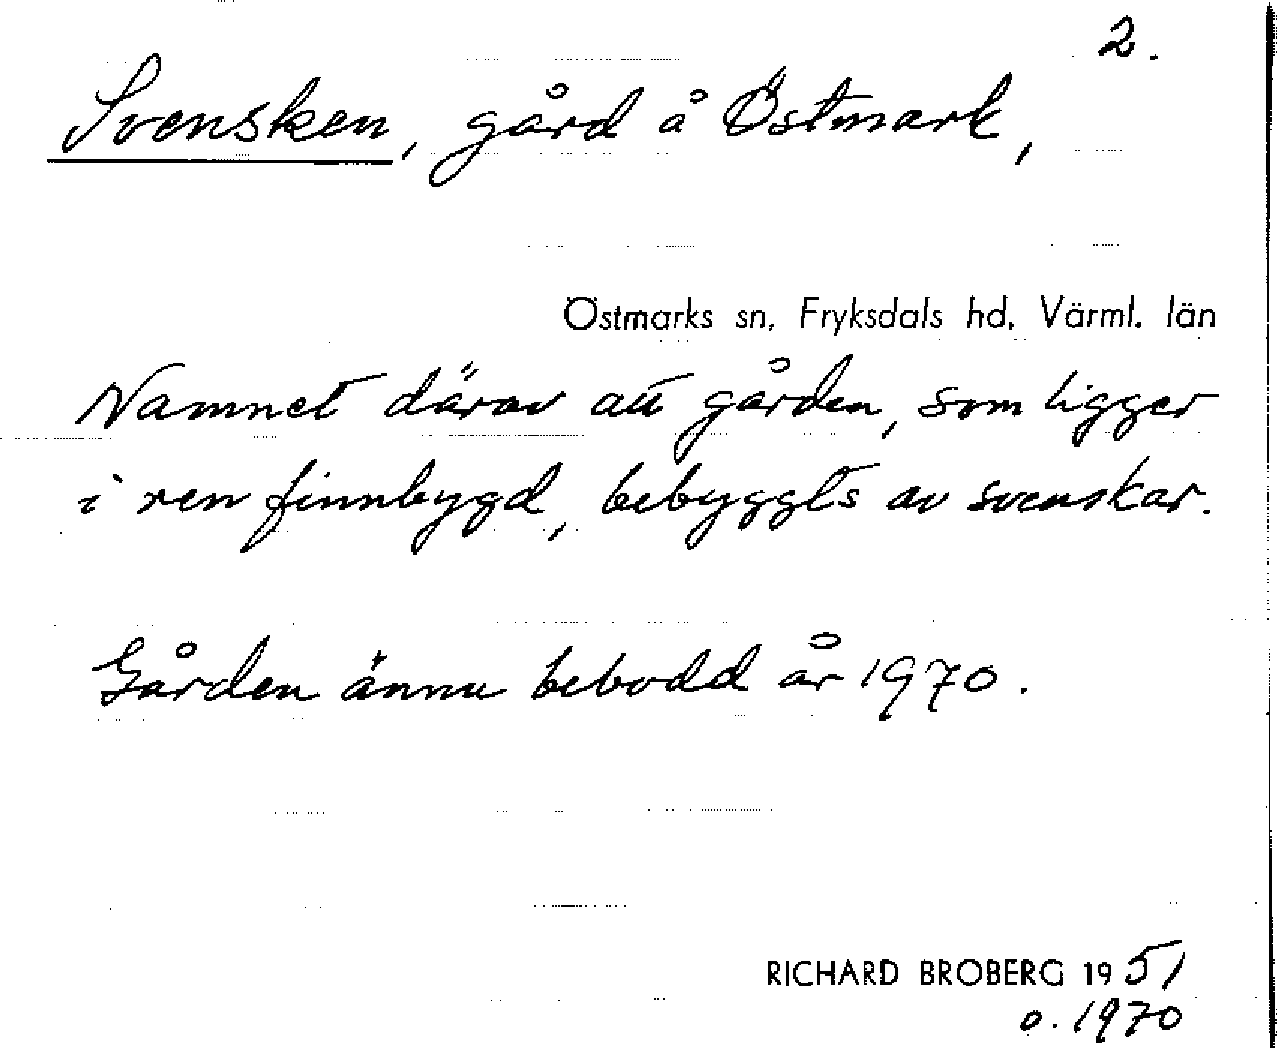 2.
Svensken, gård å Östmark,
Östmarks sn, Fryksdals hd, Värml. län
Namnet därav att gården, som ligger
i ren finnbygd, bebyggts av svenskar.
Gården ännu bebodd år 1970.
RICHARD BROBERG 1951
o. 1970